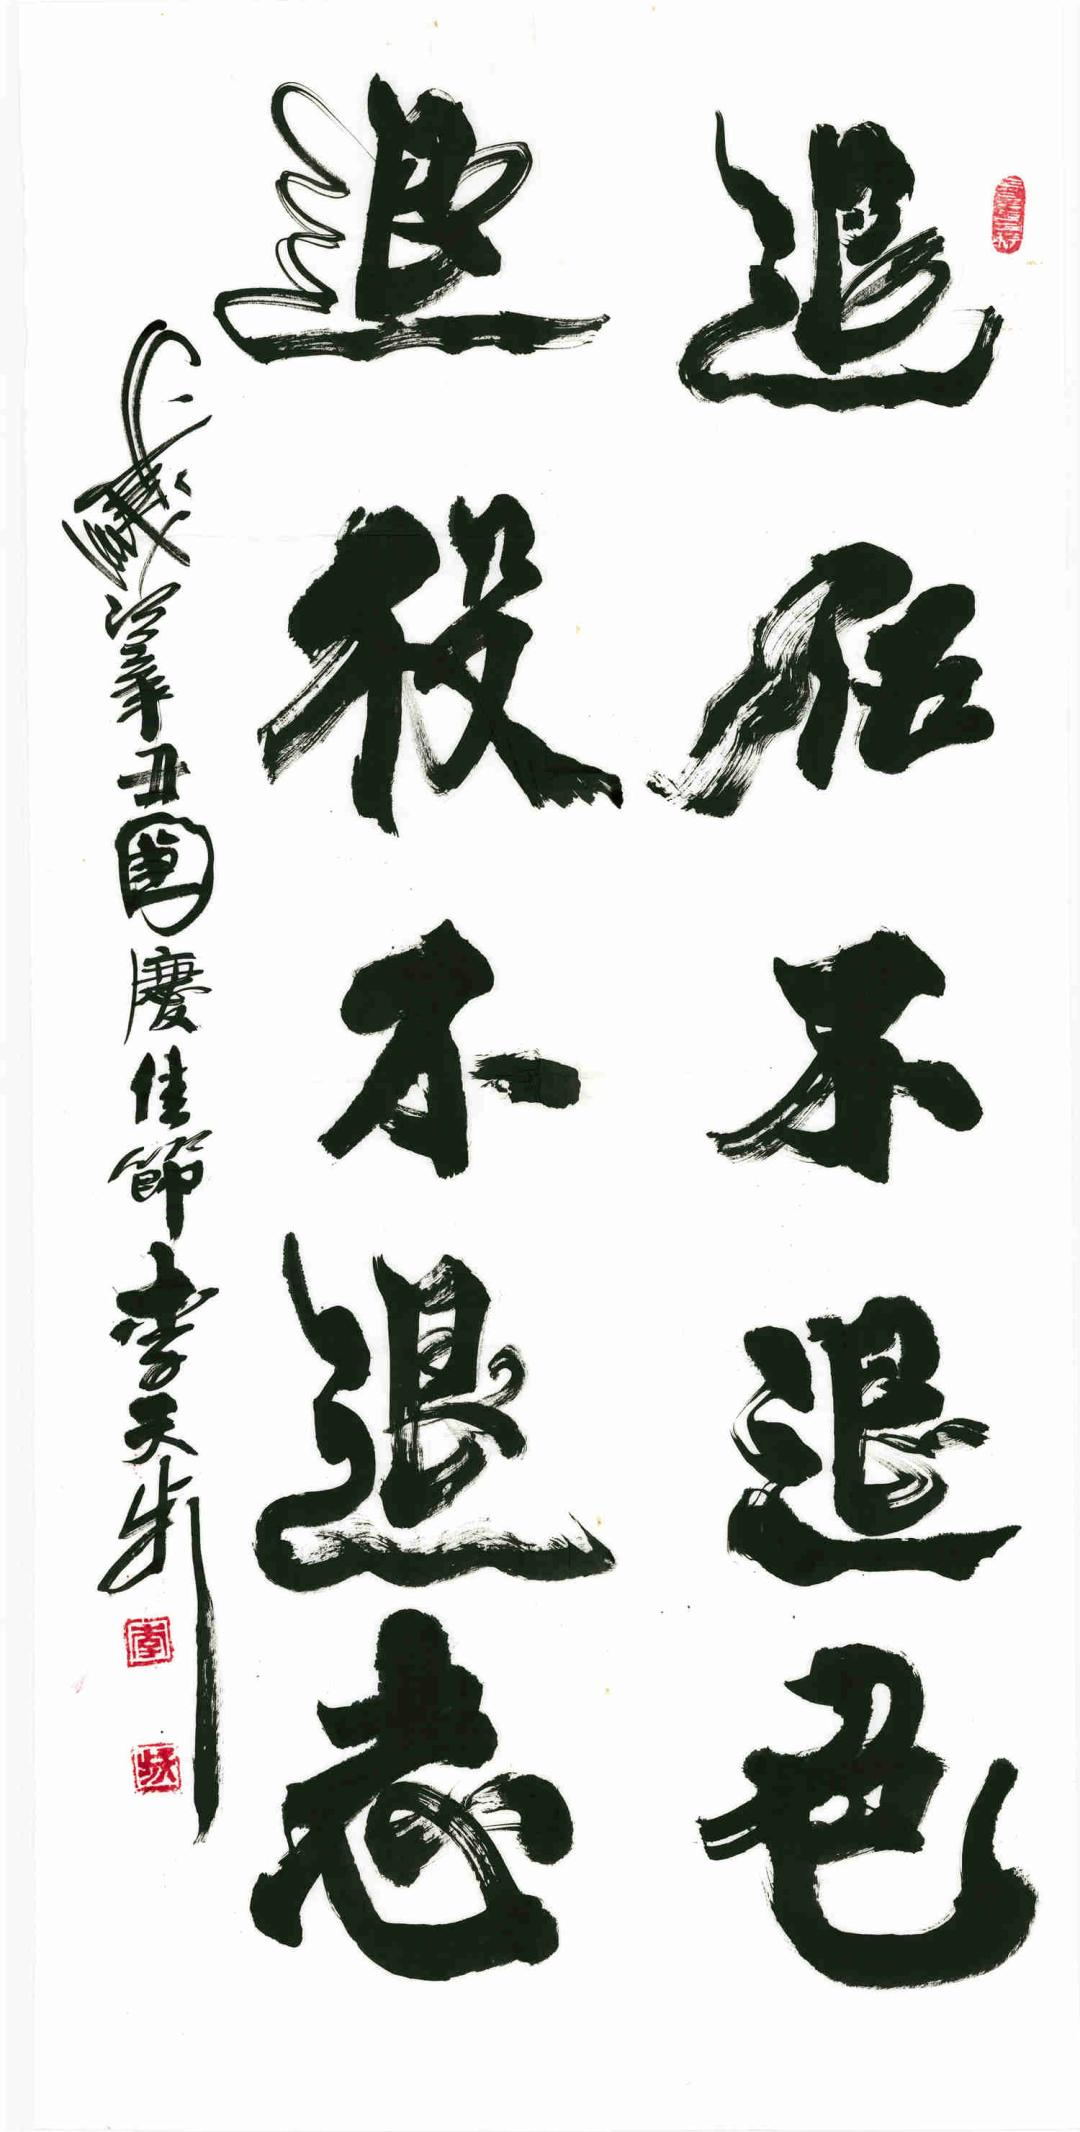 退伍不退色
退役不退志
歲次辛丑國慶佳節李天
李